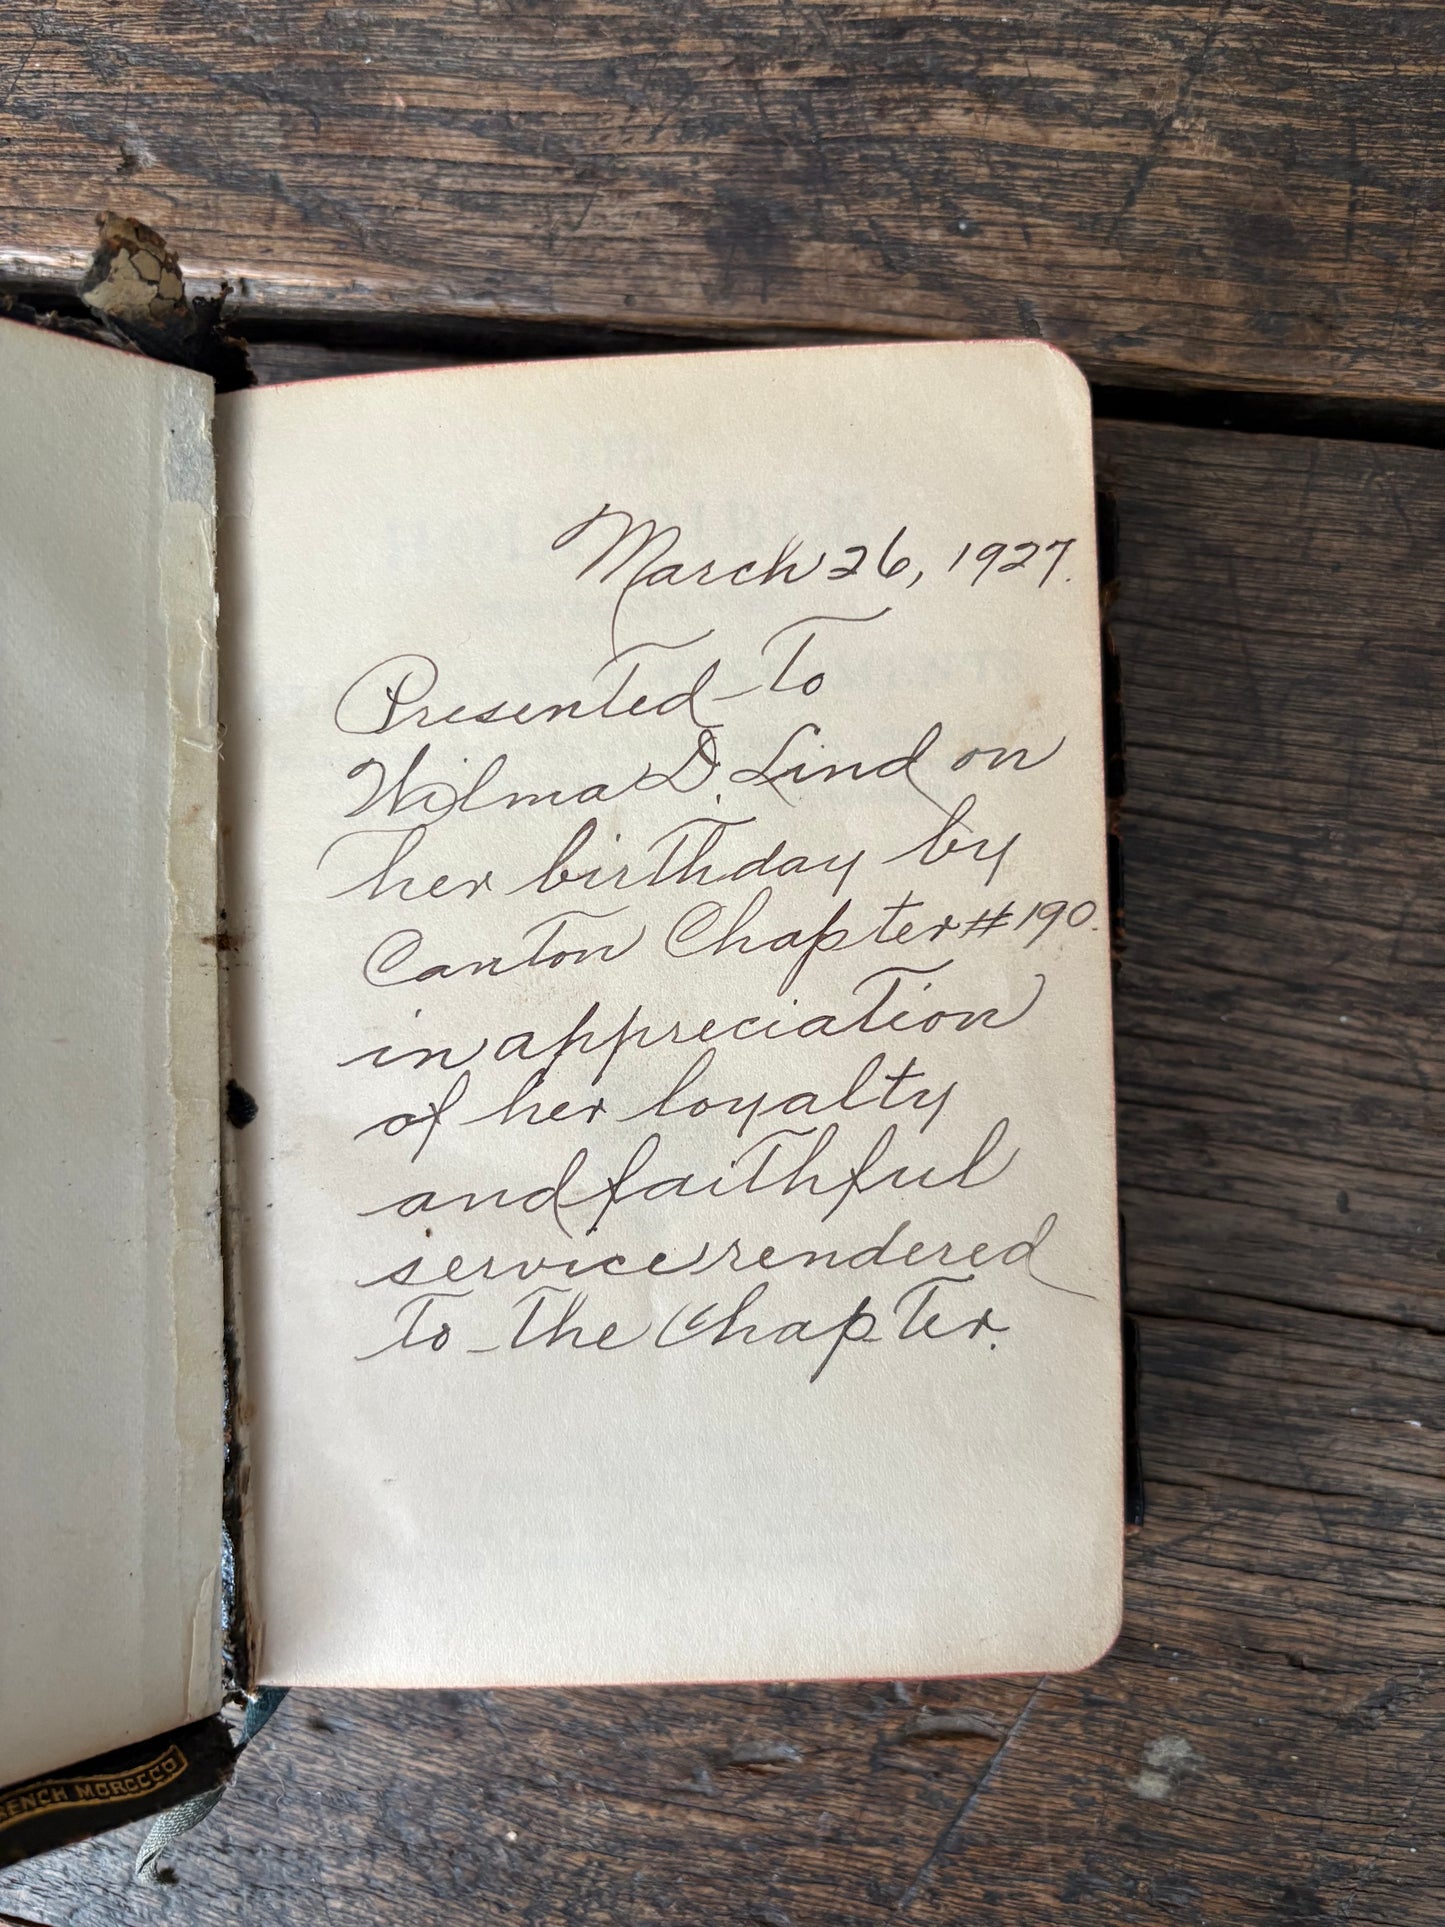 March 26, 1927.
Presented to
Wilma D. Lind on
her birthday by
Canton Chapter #190.
in appreciation
of her loyalty
and faithful
service rendered
to the Chapter.
MOROCCO